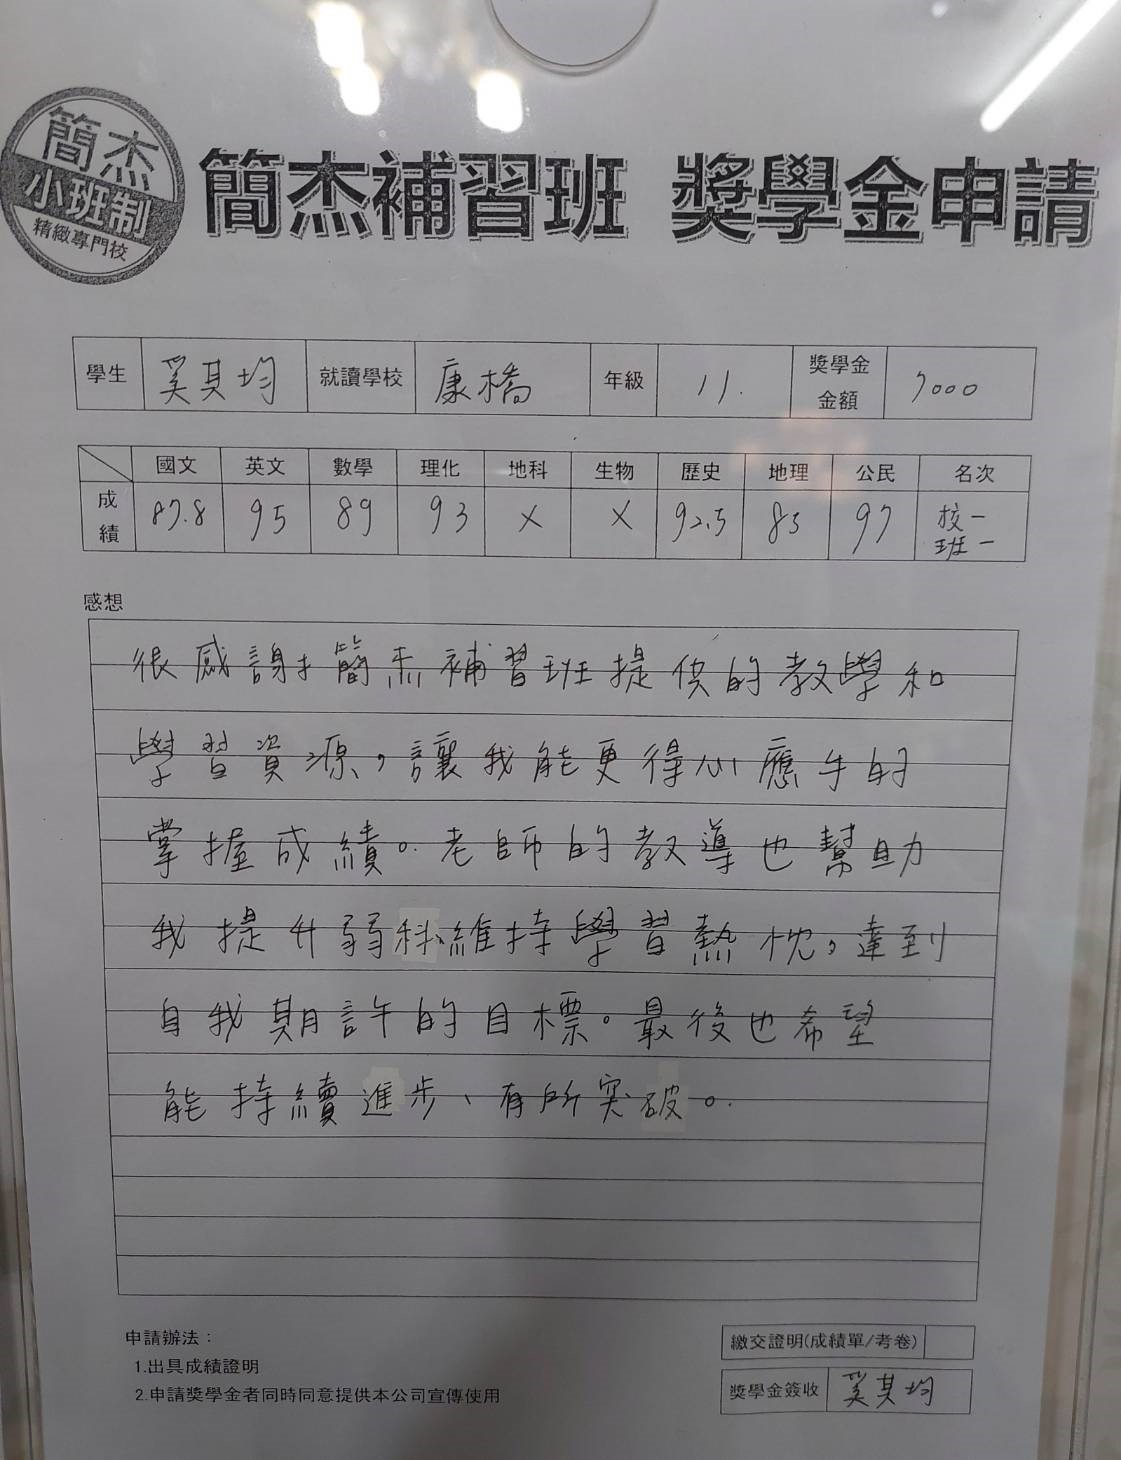 簡杰
小班制
精緻專門校
簡杰補習班 獎學金申請
學生 奚其均 就讀學校 康橋 年級 11. 獎學金金額 7000
國文 英文 數學 理化 地科 生物 歷史 地理 公民 名次
成績 87.8 95 89 93 X X 92.5 83 97 校一 班一
感想
很感謝簡杰補習班提供的教學和
學習資源,讓我能更得心應手的
掌握成績。老師的教導也幫助
我提升弱科、維持學習熱忱,達到
自我期許的目標。最後也希望
能持續進步、有所突破。
申請辦法:
1.出具成績證明
2.申請獎學金者同時同意提供本公司宣傳使用
繳交證明(成績單/考卷)
獎學金簽收 奚其均